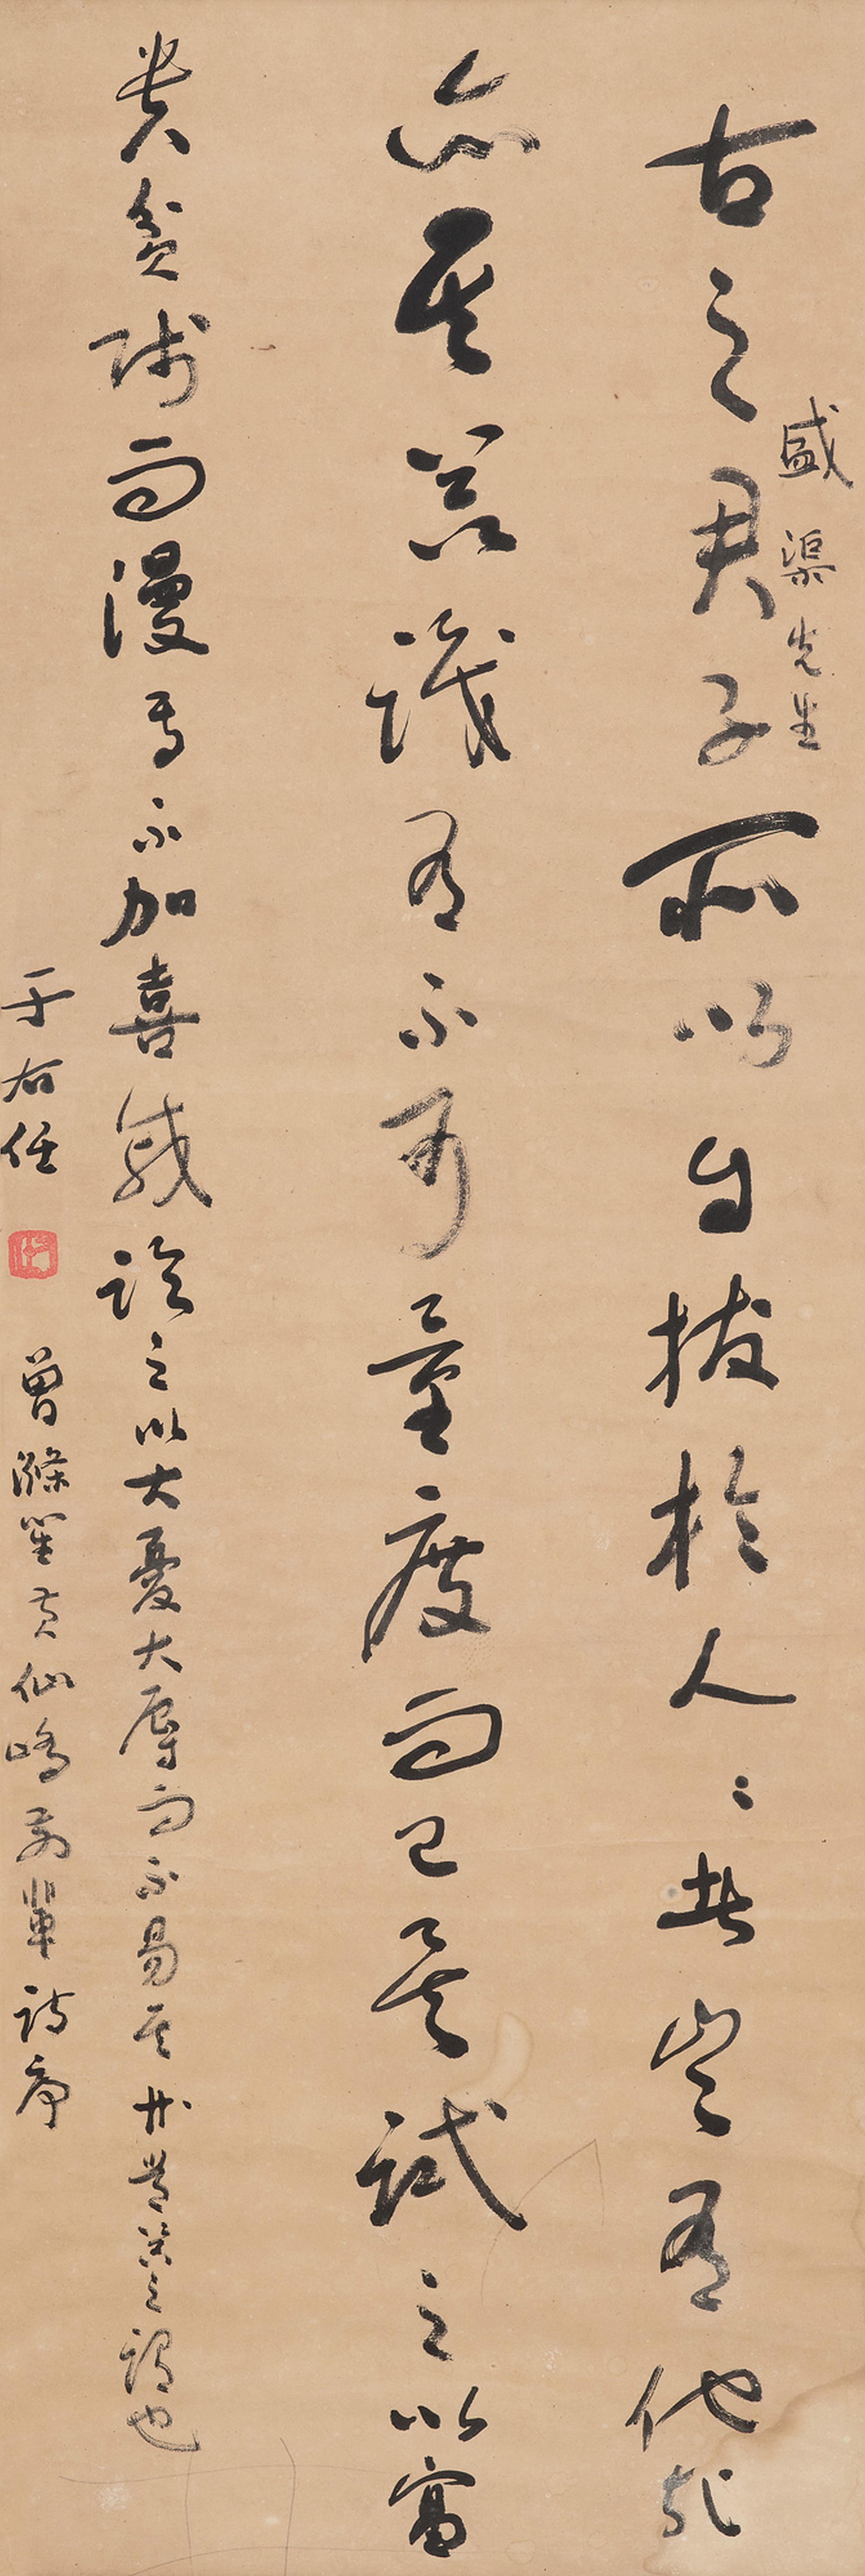 盛渠先生
古之君子所以自拔於人〻者豈有他哉
亦其器識有不可量度而已矣試之以富
貴貧賤而漫焉不加喜戚臨之以大憂大辱而不易其常器之謂也
于右任 曾滌笙黃仙嶠前輩詩序